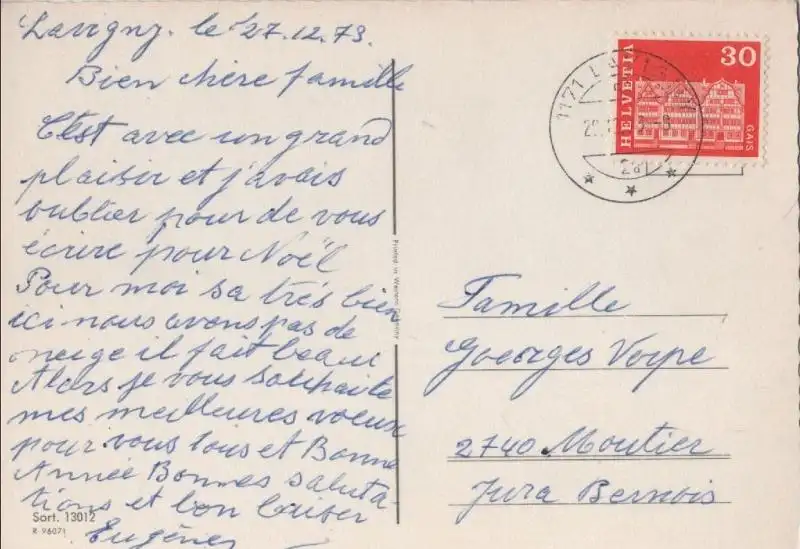 Lavigny. le 27.12.73.
Bien chère famille
C'est avec un grand
plaisir et j'avais
oublier pour de vous
écrire pour Noël
Pour moi sa très bien
ici nous avons pas de
neige il fait beau
Alors je vous souhaite
mes meilleures voeux
pour vous tous et Bonne
Année Bonnes saluta-
tions et bon baiser
Eugène
Sort. 13012
R 96071
Printed in Western Germany
HELVETIA
30
GAIS
1171
Famille
Goerges Vorpe
2740 Moutier
Jura Bernois